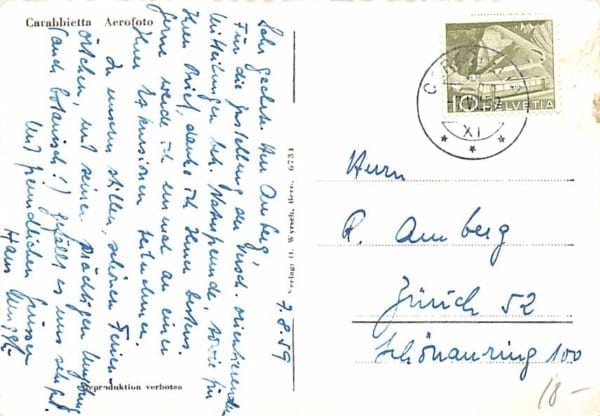 Carabbietta Aerofoto
Sehr geehrter Herr Amberg,
Für die Zustellung der versch. orientierenden
Mitteilungen betr. Naturfreunde, sowie für
Ihren Brief, danke ich Ihnen bestens.
Gerne werde ich einmal an einer
Ihrer Exkursionen teilnehmen.
In unserem stillen, schönen Ferien-
örtchen, mit seiner prächtigen Umgebung
(auch botanisch!) gefällt es uns sehr gut.
Mit freundlichen Grüssen
Hans
7.8.59
Reproduktion verboten
Verlag: O. Wyrsch, Bern. 6234
10 HELVETIA
XI
Herrn
R. Amberg
Zürich 52
Schönauring 100
18-